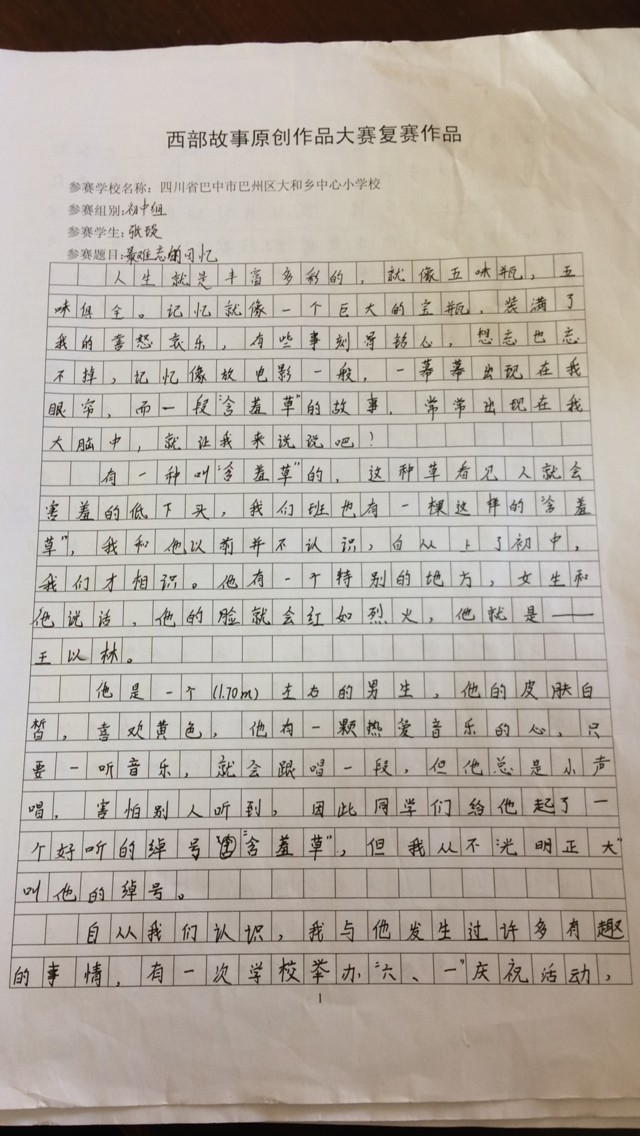 西部故事原创作品大赛复赛作品
参赛学校名称：四川省巴中市巴州区大和乡中心小学校
参赛组别：初中组
参赛学生：张琰
参赛题目：最难忘的回忆
人生就是丰富多彩的，就像五味瓶，五
味俱全。记忆就像一个巨大的宝瓶，装满了
我的喜怒哀乐，有些事刻骨铭心，想忘也忘
不掉，记忆像放电影一般，一幕幕出现在我
眼帘，而一段“含羞草”的故事，常常出现在我
大脑中，就让我来说说吧！
有一种叫“含羞草”的，这种草看见人就会
害羞的低下头，我们班也有一棵这样的“含羞
草”，我和他以前并不认识，自从上了初中，
我们才相识。他有一个特别的地方，女生和
他说话，他的脸就会红如烈火，他就是——
王以林。
他是一个(1.70m)左右的男生，他的皮肤白
皙，喜欢黄色，他有一颗热爱音乐的心，只
要一听音乐，就会跟唱一段，但他总是小声
唱，害怕别人听到，因此同学们给他起了一
个好听的绰号“含羞草”，但我从不“光明正大”
叫他的绰号。
自从我们认识，我与他发生过许多有趣
的事情，有一次学校举办“六、一”庆祝活动，
1